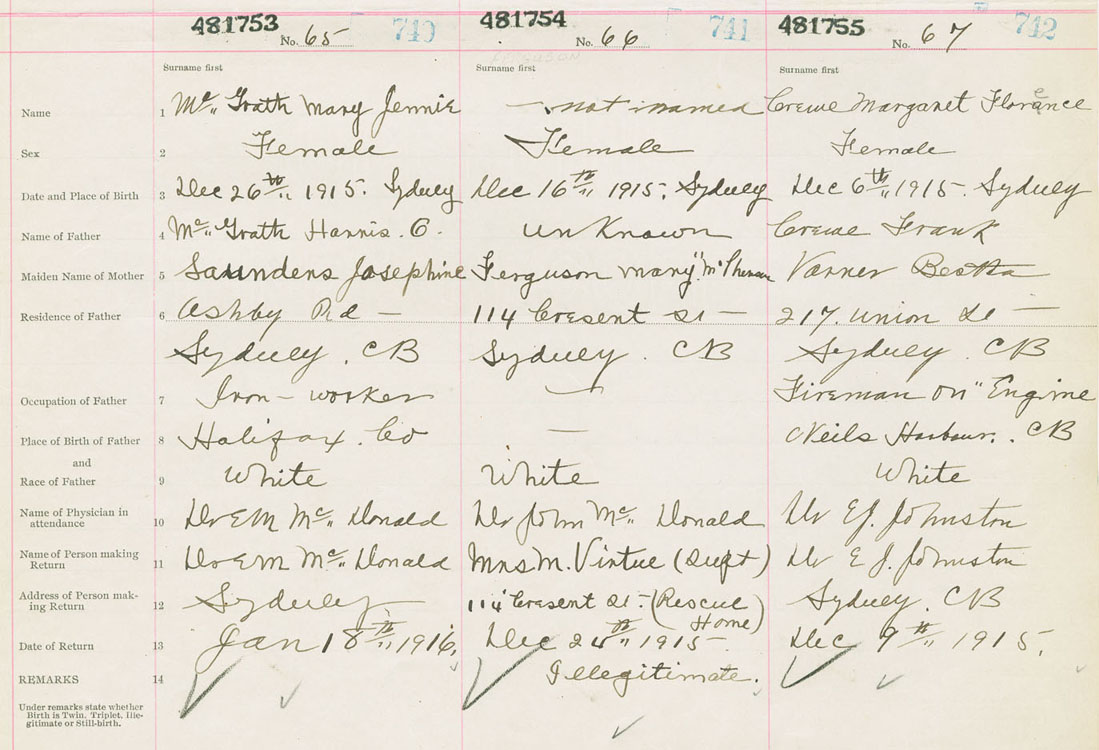 481753 No. 65 740 481754 No. 66 741 481755 No. 67 742
FERGUSON
Surname first Surname first Surname first
Name 1 Mc Grath Mary Jennie — not named Crewe Margaret Florence
Sex 2 Female Female Female
Date and Place of Birth 3 Dec 26th 1915. Sydney Dec 16th 1915. Sydney Dec 6th 1915. Sydney
Name of Father 4 Mc Grath Harris. C. unknown Crewe Frank
Maiden Name of Mother 5 Saunders Josephine Ferguson Mary Varner Bertha
Residence of Father 6 Ashby Rd — 114 Cresent St — 217. Union St —
Sydney. CB Sydney. CB Sydney. CB
Occupation of Father 7 Iron-worker — Fireman on "Engine
Place of Birth of Father 8 Halifax. Co — Neils Harbour. CB
and
Race of Father 9 White White White
Name of Physician in
attendance 10 Dr E M Mc Donald Dr John Mc Donald Dr E J. Johnston
Name of Person making
Return 11 Dr E M Mc Donald Mrs M. Virtue (Supt) Dr E J. Johnston
Address of Person mak-
ing Return 12 Sydney 114 Cresent St. (Rescue Home) Sydney. CB
Date of Return 13 Jan 18th 1916. Dec 24th 1915 Dec 9th 1915.
REMARKS 14 Illegitimate.
Under remarks state whether
Birth is Twin, Triplet, Ille-
gitimate or Still-birth.